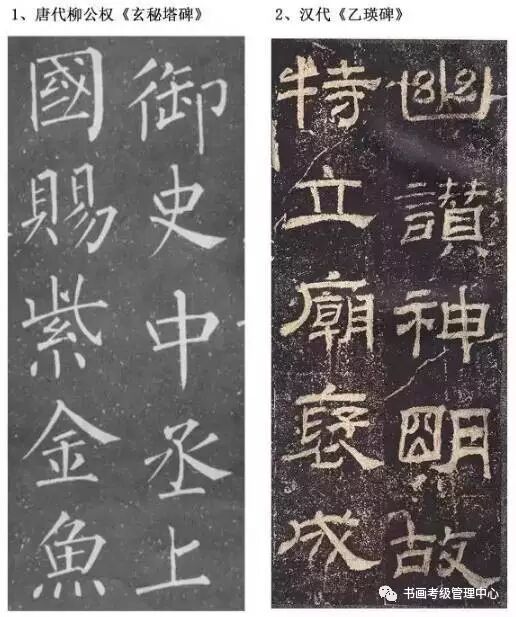 1、唐代柳公权《玄秘塔碑》
御史中丞上
國賜紫金魚
2、汉代《乙瑛碑》
幽讃神明故
特立廟褒成
书画考级管理中心